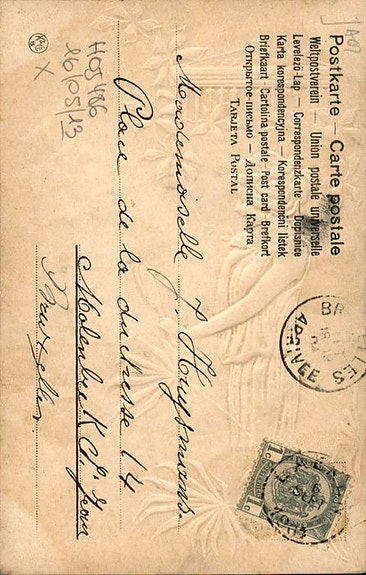 Postkarte — Carte postale
Weltpostverein — Union postale universelle
Levelezö-Lap — Correspondenzkarte — Dopisnice
Karta korespondencyjna — Korespondencni listek
Briefkaart - Cartolina postale - Post card - Brefkort
Открытое-письмо — Дописна Карта
TARJETA POSTAL
Mademoiselle J. Huysmans.
Place de la duchesse 14
Molenbeek St. Jean
Bruxelles
HOJ486
16/05/13
X
ARRIVEE
1 1